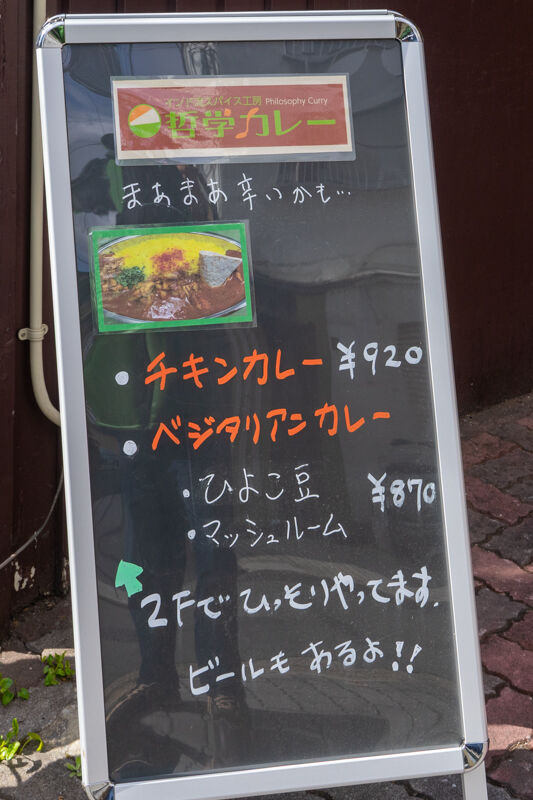 インド風スパイス工房 Philosophy Curry
哲学カレー
まあまあ辛いかも…
・チキンカレー ¥920
・ベジタリアンカレー
・ひよこ豆 ¥870
・マッシュルーム
2Fでひっそりやってます.
ビールもあるよ!!